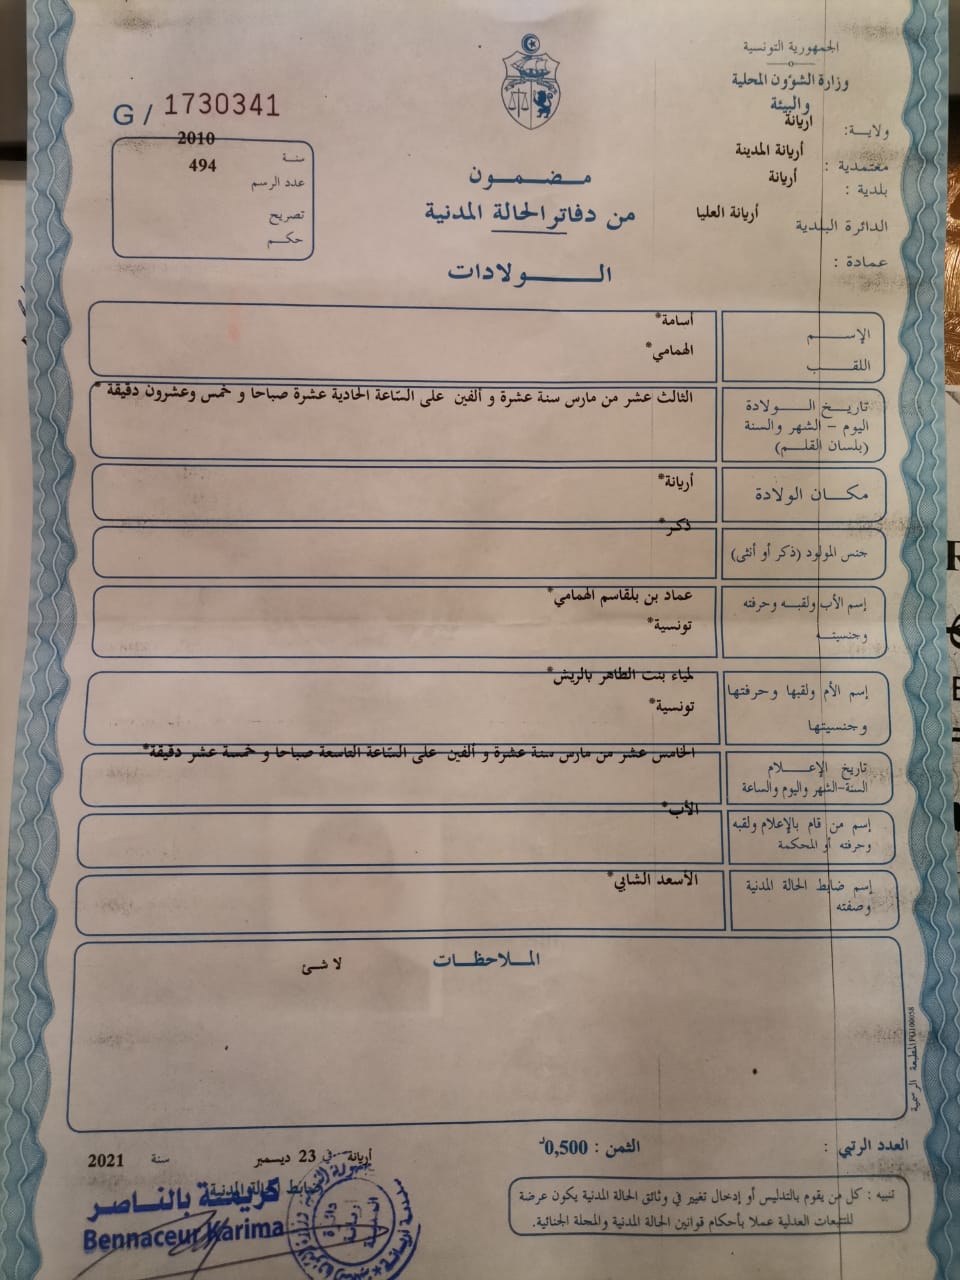 الجمهورية التونسية
وزارة الشؤون المحلية
والبيئة
ولاية: اريانة
معتمدية : أريانة المدينة
بلدية : أريانة
الدائرة البلدية أريانة العليا
عمادة :
G / 1730341
سنة 2010
عدد الرسم 494
تصريح
حكم
مضمون
من دفاتر الحالة المدنية
الولادات
الإسم أسامة*
اللقب الهمامي*
تاريخ الولادة
اليوم - الشهر والسنة
(بلسان القلم)
الثالث عشر من مارس سنة عشرة و ألفين على الساعة الحادية عشرة صباحا و خمس وعشرون دقيقة *
مكان الولادة أريانة*
جنس المولود (ذكر أو أنثى) ذكر*
إسم الأب ولقبه وحرفته
وجنسيته
عماد بن بلقاسم الهمامي*
تونسية*
إسم الأم ولقبها وحرفتها
وجنسيتها
لمياء بنت الطاهر بالريش*
تونسية*
تاريخ الإعلام
السنة-الشهر واليوم والساعة
الخامس عشر من مارس سنة عشرة و ألفين على الساعة التاسعة صباحا و خمسة عشر دقيقة*
إسم من قام بالإعلام ولقبه
وحرفته أو المحكمة
الأب*
إسم ضابط الحالة المدنية
وصفته
الأسعد الشابي*
الملاحظات
لا شئ
المطبعة الرسمية
العدد الرتبي :
الثمن : 0,500د
أريانة في 23 ديسمبر سنة 2021
ضابط الحالة المدنية
كريمة بالناصر
Bennaceur Karima
تنبيه : كل من يقوم بالتدليس أو إدخال تغيير في وثائق الحالة المدنية يكون عرضة
للتتبعات العدلية عملا بأحكام قوانين الحالة المدنية والمجلة الجنائية.